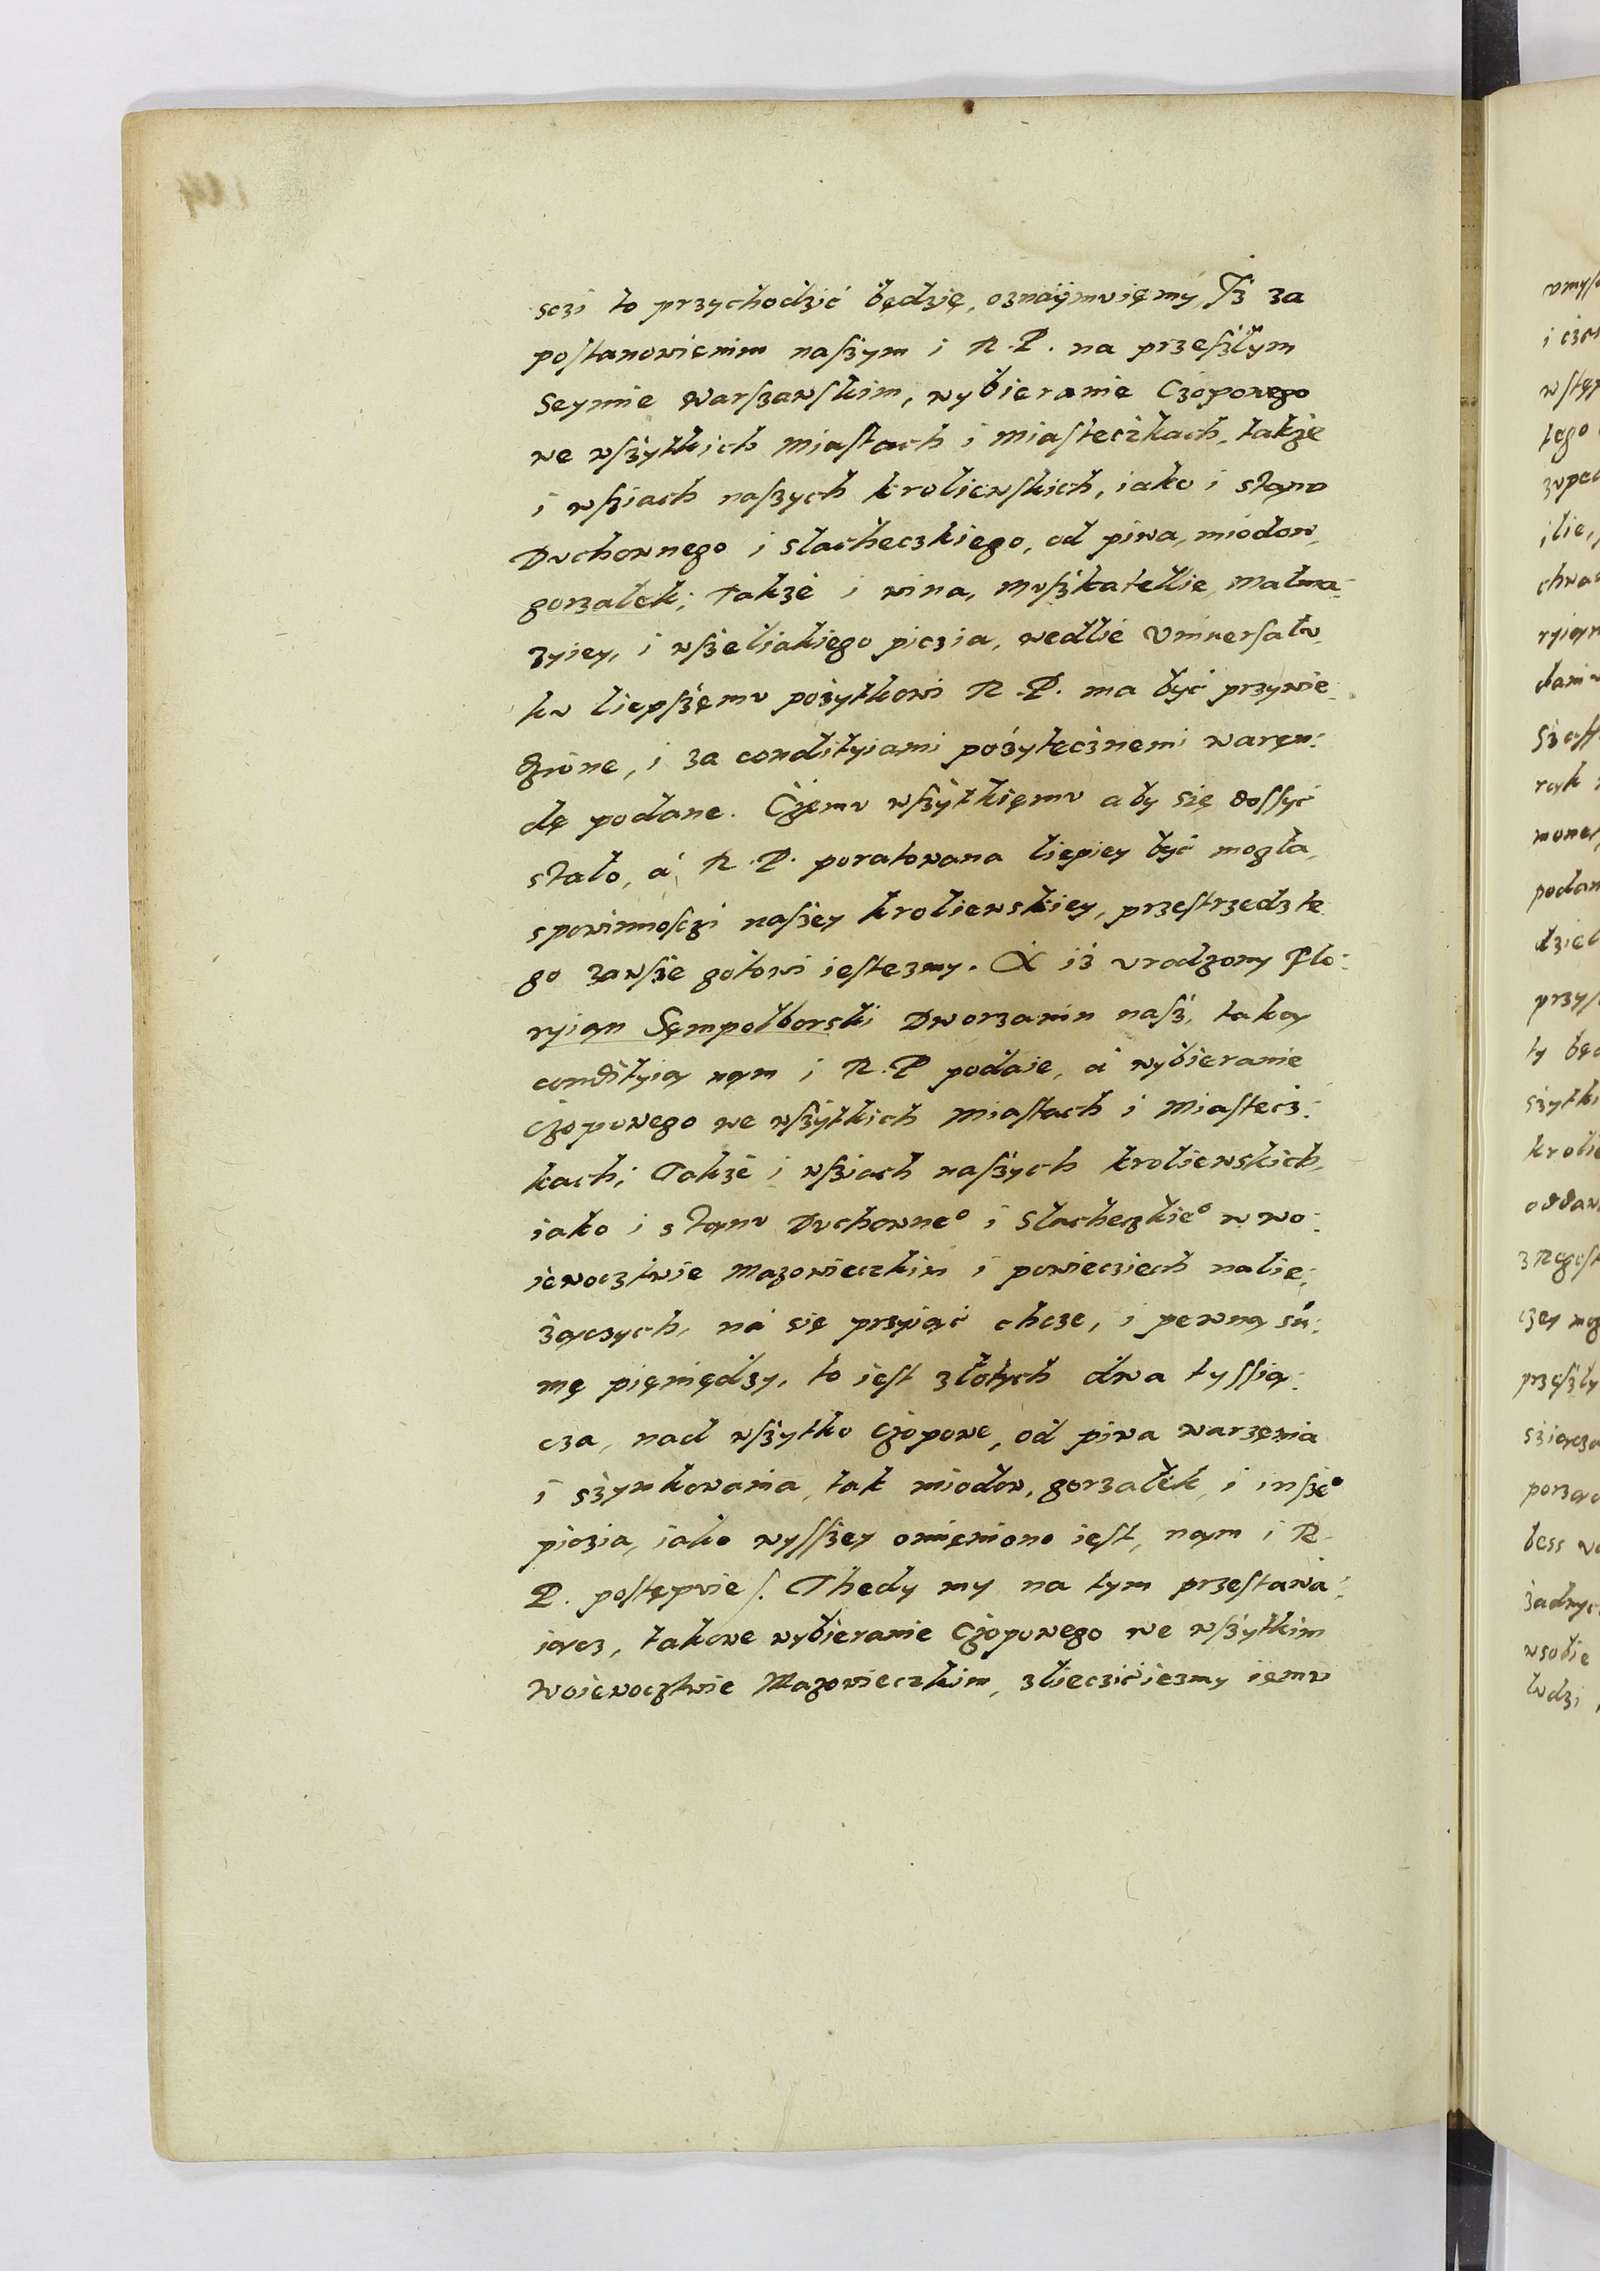 sczi to przychodzić będzię, oznáÿmuięmÿ, Jż za
postanowienim naszym i R. P. na przeszłym
Seymie Warszawskim, wybieranie Czopowego
we wszytkich miastach i miasteczkach, także
i wsziach naszych kroliewskich, iako i stanu
Duchownego i slacheczkiego, od piwa, miodow,
gorzalek; Także i wina, muszkatellie, malwa:
zyiey, i wszeliakiego piczia, wedlie Vniuersalu,
ku liepszęmu pożytkowi R. P. ma być przywie:
dzione, i za conditÿiami pożytecznemi waręn:
dę podane. Częmu wszytkięmu aby się dossyć
stało, á R. P. poratowana liepiey być mogła,
spowinnosczi naszey kroliewskiey, przestrzedz te:
go zawsze gotowi iestezmy. A iż vrodzony Flo:
ryian Sęmpolborski Dworzanin nasz, taką
conditÿią nąm i R. P podaie, á wybieranie
Czopowego we wszytkich miastach i miastecz:
kach; Także i wsziach naszych kroliewskich,
iako i stanu Duchowneo i Slacheczkieo w wo:
iewocztwie Mazowieczkim i powieciech nalie:
żączych, ná się przyiąć chcze, i pewną su:
mę pięniędzy, to iest złotych dwa tyssią:
cza, nad wszytko Czopowe, od piwa warzęnia
i szynkowania, tak miodow, gorzalek, i inszeo
piczia, iako wysszey omięniono iest, nąm i R.
P. postępuie. Thedy my na tym przestawa:
iącz, takowe wybieranie Czopowego we wszytkim
Woiewocztwie Mazowieczkim, zlieczićiezmy ięmu